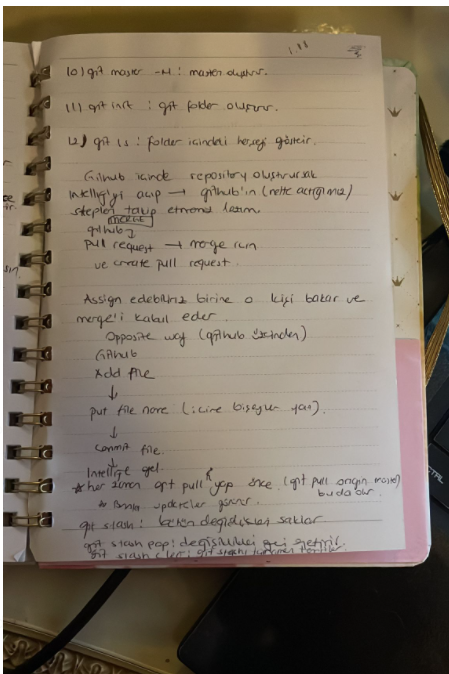 10) git master -M : master oluşturur.
11) git init : git folder oluşturur.
12) git ls : folder icindeki herşeyi gösterir.
Github icinde repository oluştursak
Intellig'yi acıp → github'ın (nette actığımız)
stepleri takip etmemiz lazım.
merge
github
pull request → merge icin
ve create pull request.
Assign edebiliriz birine o kişi bakar ve
merge'i kabul eder.
Opposite way (github üzerinden)
Github
Add file
↓
put file name (icine bişeyler yaz).
↓
commit file.
↓
Intellige gel.
* her zaman git pull yap önce (git pull origin master)
bu da olur.
* Bunla updateler gelir.
git stash : değişiklikleri saklar
git stash pop : değişiklikleri geri getirir.
git stash clear : git stashı temizler.